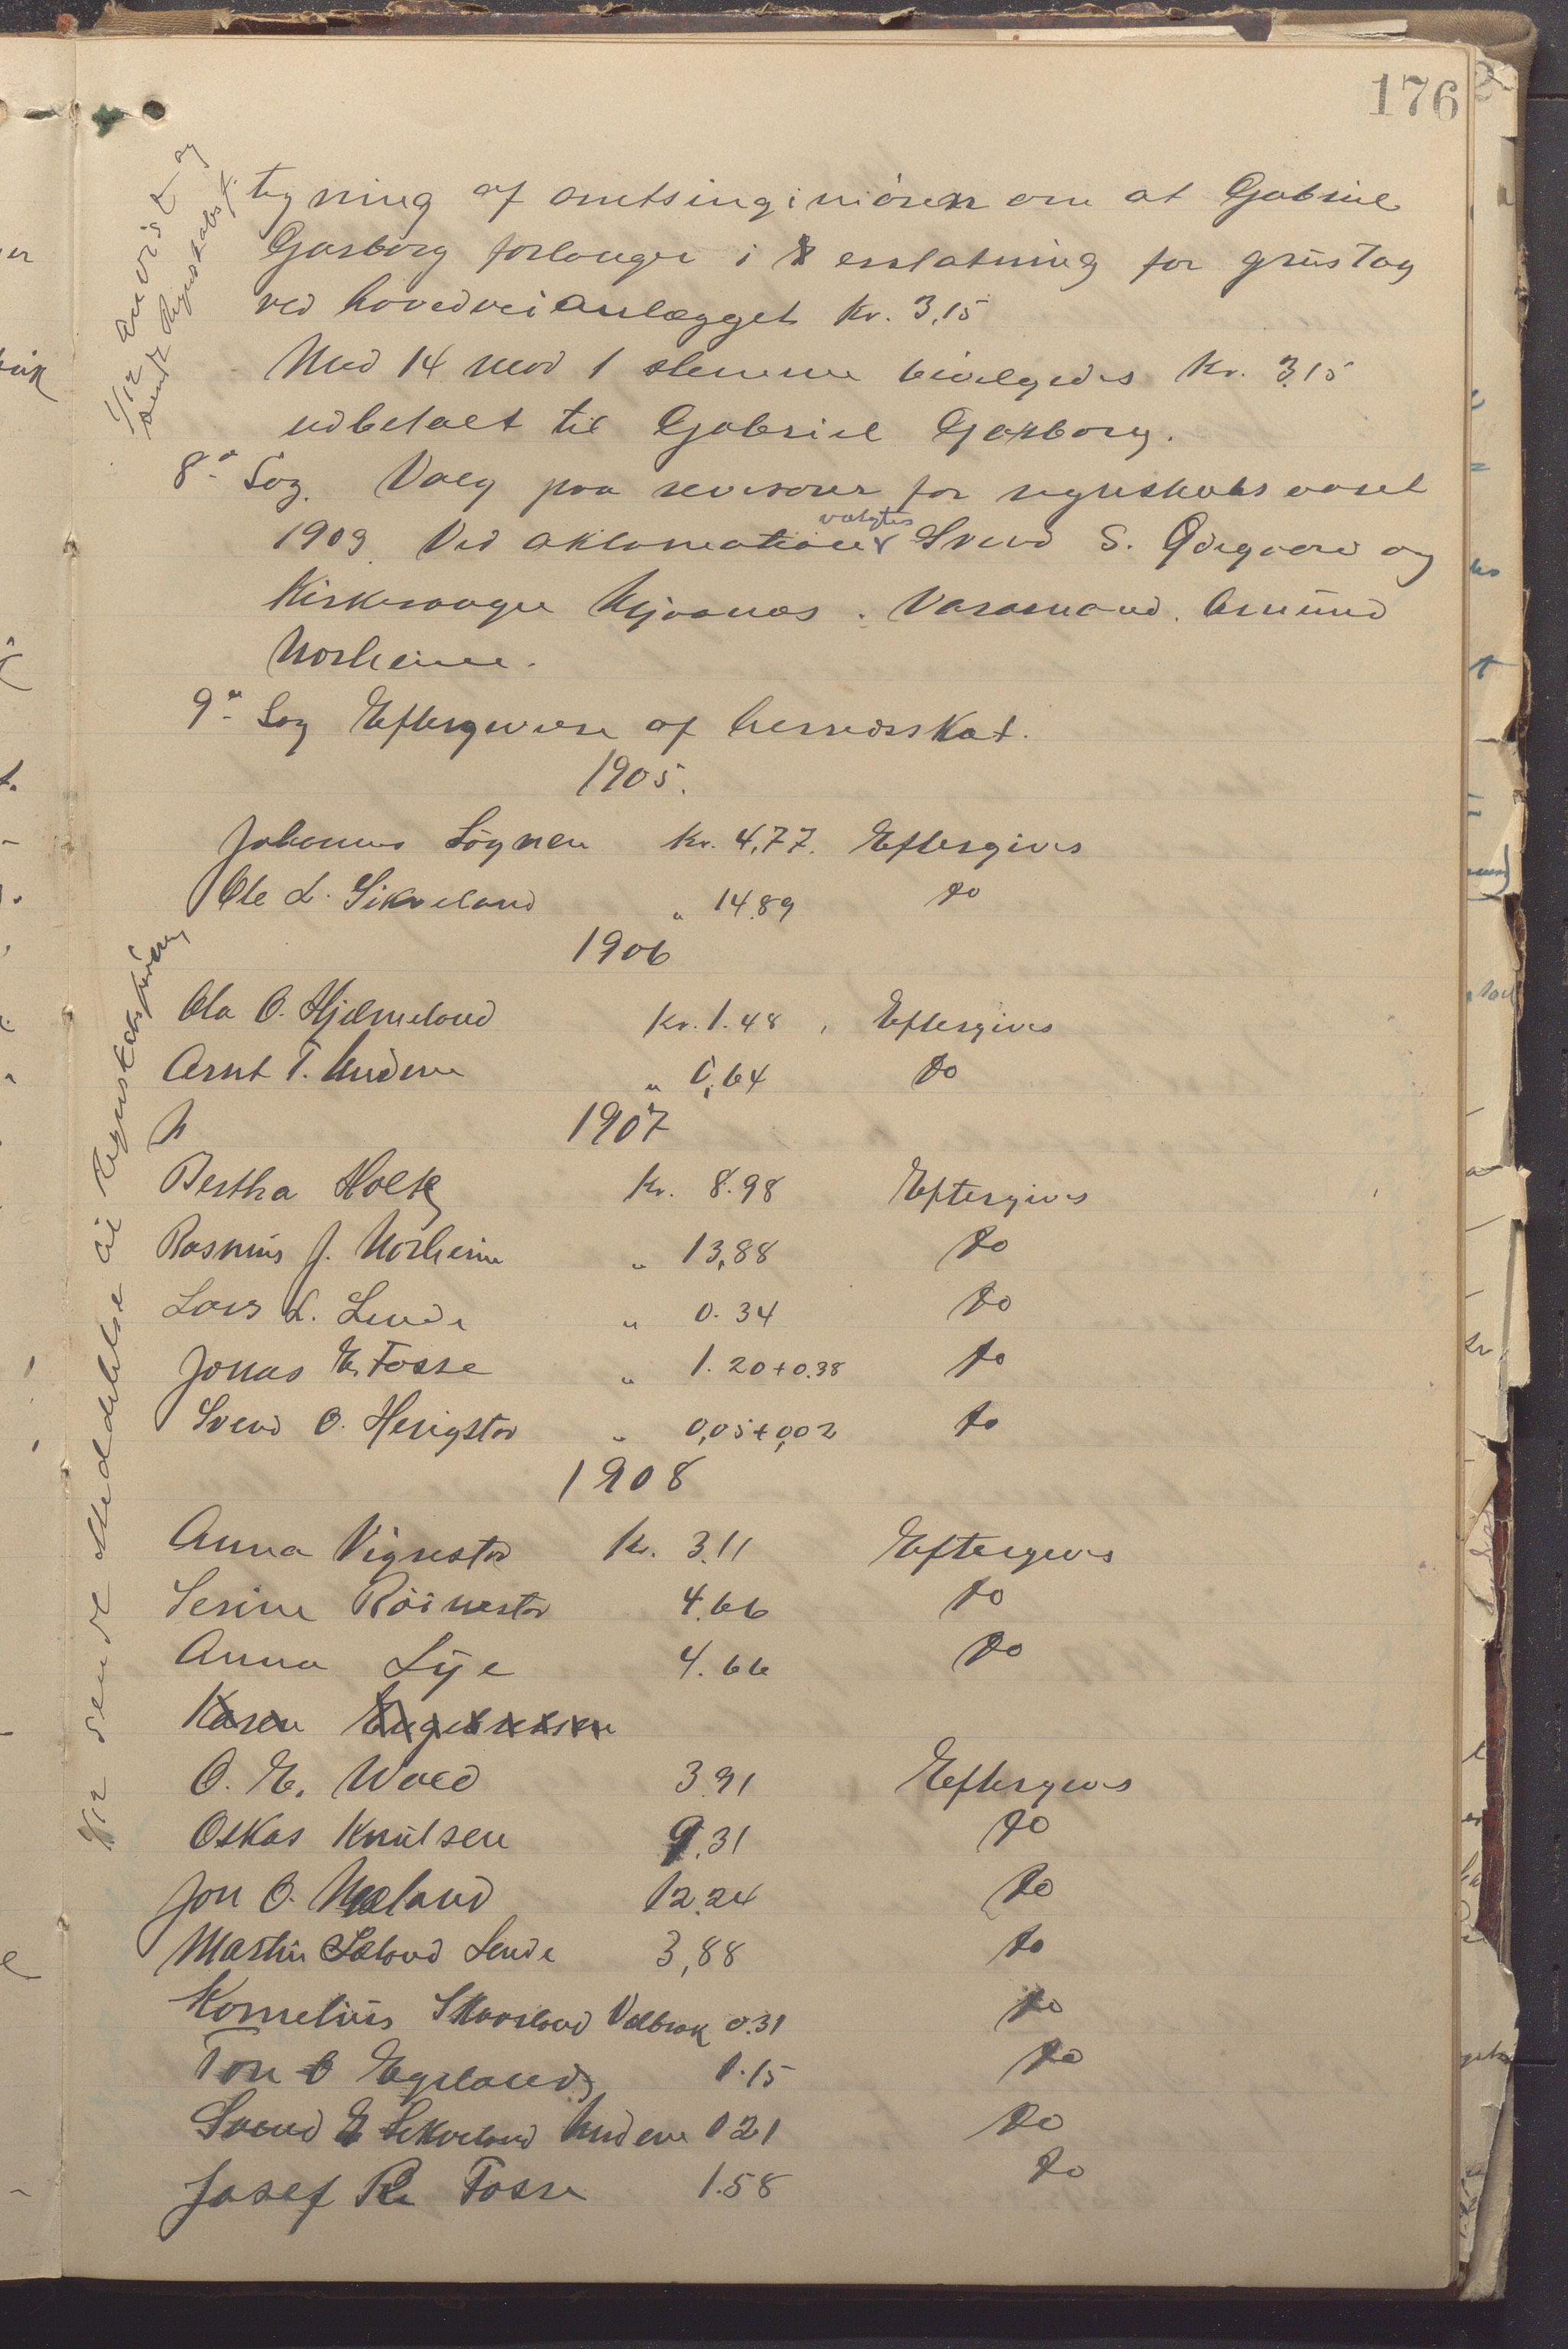 176
tegning af amtsingeniören om at Gabriel
Garborg forlanger i erstatning for grustag
ved hovedveianlægget Kr. 3,15
Med 14 mod 1 stemme bevilgedes Kr. 3,15
udbetalt til Gabriel Garborg.
8de Sag. Valg paa revisorer for regnskabsaaret
1909. Ved aklamation valgtes Svend S. Ödegaard og
Kirkesanger Mjaanes. Varamand. Amund
Norheim.
9de Sag Eftergivelse af herredsskat.
1905.
Johannes Lögnen Kr. 4,77. Eftergives
Ole L. Sikveland " 14.89 do
1906
Ola O. Hjelmeland Kr. 1.48, Eftergives
Arnt T. Undem " 0,64 do
N
1907
Bertha Holk Kr. 8.98 Eftergives
Rasmus J. Norheim " 13,88 do
Lars L. Lende " 0.34 do
Jonas E. Fosse " 1.20+0.38 do
Svend O. Herigstad " 0,05+0,02 do
1908
Anna Vignestad Kr. 3.11 Eftergives
Serine Röinestad 4.66 do
Anna Lye 4.66 do
Karen Engebretsen
O. E. Wold 3.91 Eftergives
Oskar Knutsen 9.31 do
Jon O. Mæland 12.24 do
Martin Sæland Lende 3,88 do
Kornelius Skaarland 0.31 do
Ton O Egeland 1.15 do
Svend E Sikveland Undem 0 21 do
Josef R Fosse 1.58 do
1/12 anvist og
sendt Regnskabsf.
1/12 sendt Meddelelse til Regnskabsföreren